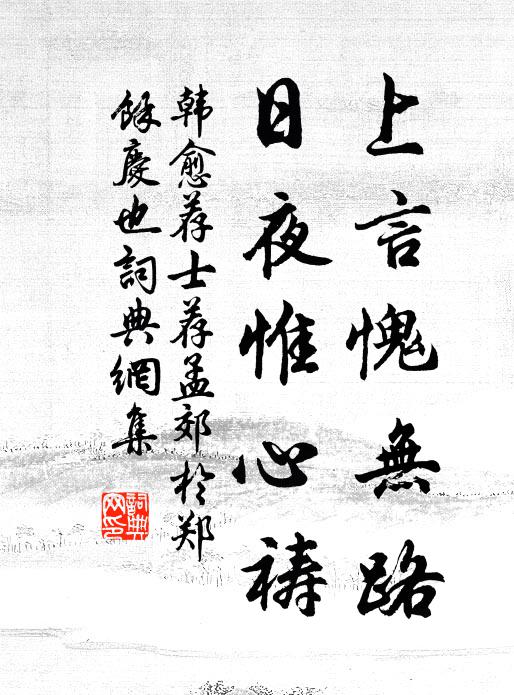 上言愧無路
日夜惟心祷
韩愈荐士荐孟郊於郑
餘慶也詞典網集
詞典網印